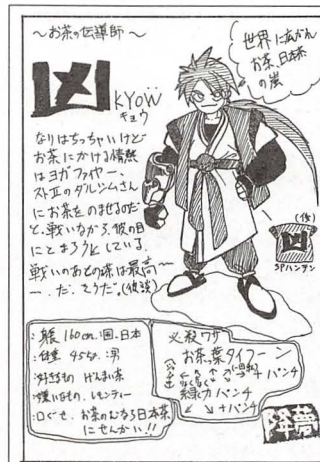 〜お茶の伝導師〜
凶
KYOW
キョウ
世界に広がん
お茶、日本茶
の嵐
なりはちっちゃいけど
お茶にかける情熱
はヨガファイヤー、
ストIIのダルシムさん
にお茶をのませるのだ
と、戦いながら、彼の目
にとまろうとしている。
戦いのあとの球は最高〜
〜、だ、そうだ。(彼談)
(後)
凶
SPハンテン
:身長 160cm :国.日本
:体重 45kg :男
:好きなもの げんまい茶
:嫌いなもの レモンティー
:口ぐせ お茶のむなら日本茶
にせんかい!!
必殺ワザ
お茶葉タイフーン
+パンチ
緑力パンチ
+パンチ
降夢